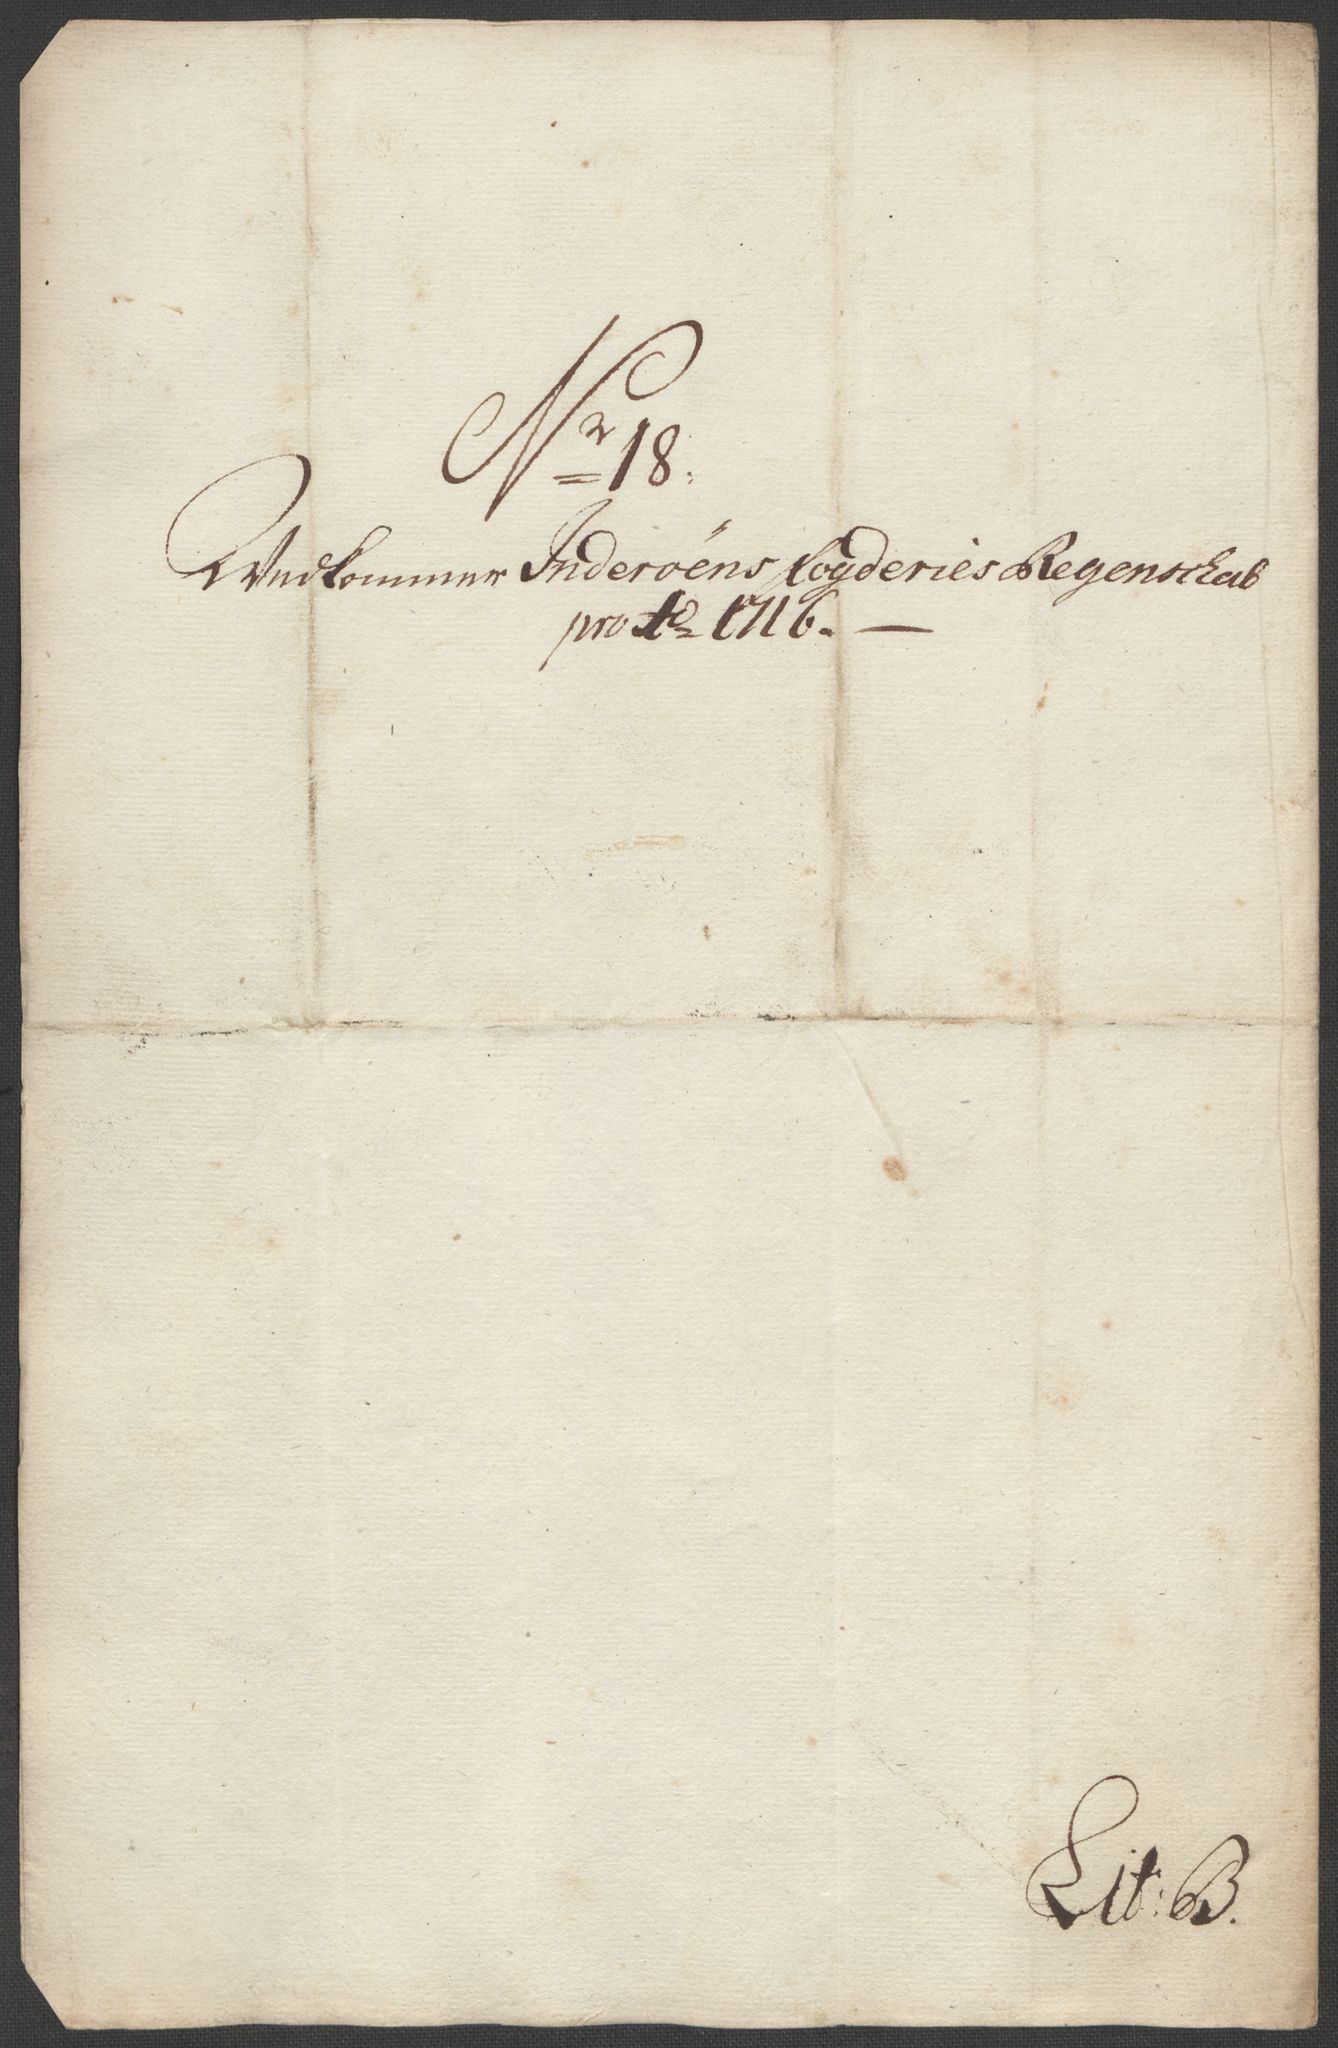 Nr 18.
Vedkommer Inderöens fogderies Regenschab
pro Ao 1716.
Lit: B.